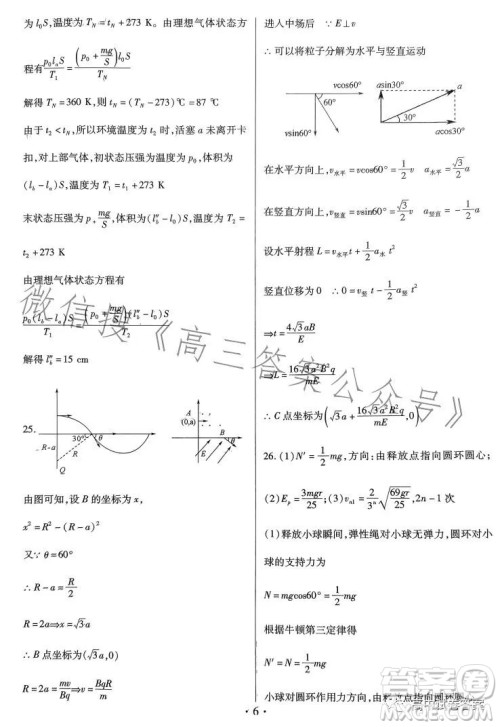 为 l₀S,温度为 T_N = t_N + 273 K。由理想气体状态方
程有 p₀l_nS/T₁ = (p₀ + mg/S)l₀S/T_N
解得 T_N = 360 K,t_N = (T_N − 273) ℃ = 87 ℃
由于 t₂ < t_N,所以环境温度为 t₂ 时,活塞 a 未离开卡
扣,对上部气体,初状态压强为 p₀,温度为 T₁,体积为
(l_k − l_a)S,T₁ = t₁ + 273 K
末状态压强为 p + mg/S,体积为(l″_k − l₀)S,温度为 T₂ =
t₂ + 273 K
由理想气体状态方程有
p₀(l_k − l_a)S/T₁ = (p₀ + mg/S)(l″_k − l₀)S/T₂
解得 l″_k = 15 cm
25.
30°
θ
R−a
Q
A
(0,a)
B
θ
由图可知,设 B 的坐标为 x,
x² = R² − (R − a)²
又∵ θ = 60°
∴ R − a = R/2
R = 2a ⇒ x = √3a
∴ B 点坐标为(√3a,0)
R = 2a = mv/Bq ⇒ v = BqR/m
进入中场后 ∵ E⊥v
∴ 可以将粒子分解为水平与竖直运动
vcos60°
60°
vsin60°
asin30°
a
30°
acos30°
在水平方向上,v水平 = vcos60° = 1/2 v a水平 = √3/2 a
在竖直方向上,v竖直 = vsin60° = √3/2 v a竖直 = − 1/2 a
设水平射程 L = v水平t + 1/2 a水平 t²
竖直位移为 0 ∴ 0 = v竖t + 1/2 a竖t²
⇒ t = 4√3aB/E
⇒ L = 16√3a²B²q/mE
∴ C 点坐标为(√3a + 16√3a²B²q/mE,0)
26. (1)N′ = 1/2 mg,方向:由释放点指向圆环圆心;
(2)E_p = 3mgr/25;(3)v_n1 = 2/3ⁿ √(69gr/25),2n − 1 次
(1)释放小球瞬间,弹性绳对小球无弹力,圆环对小
球的支持力为
N = mgcos60° = 1/2 mg
根据牛顿第三定律得
N′ = N = 1/2 mg
小球对圆环作用力方向:由释放点指向圆环圆心
· 6 ·
微信搜《高三答案公众号》